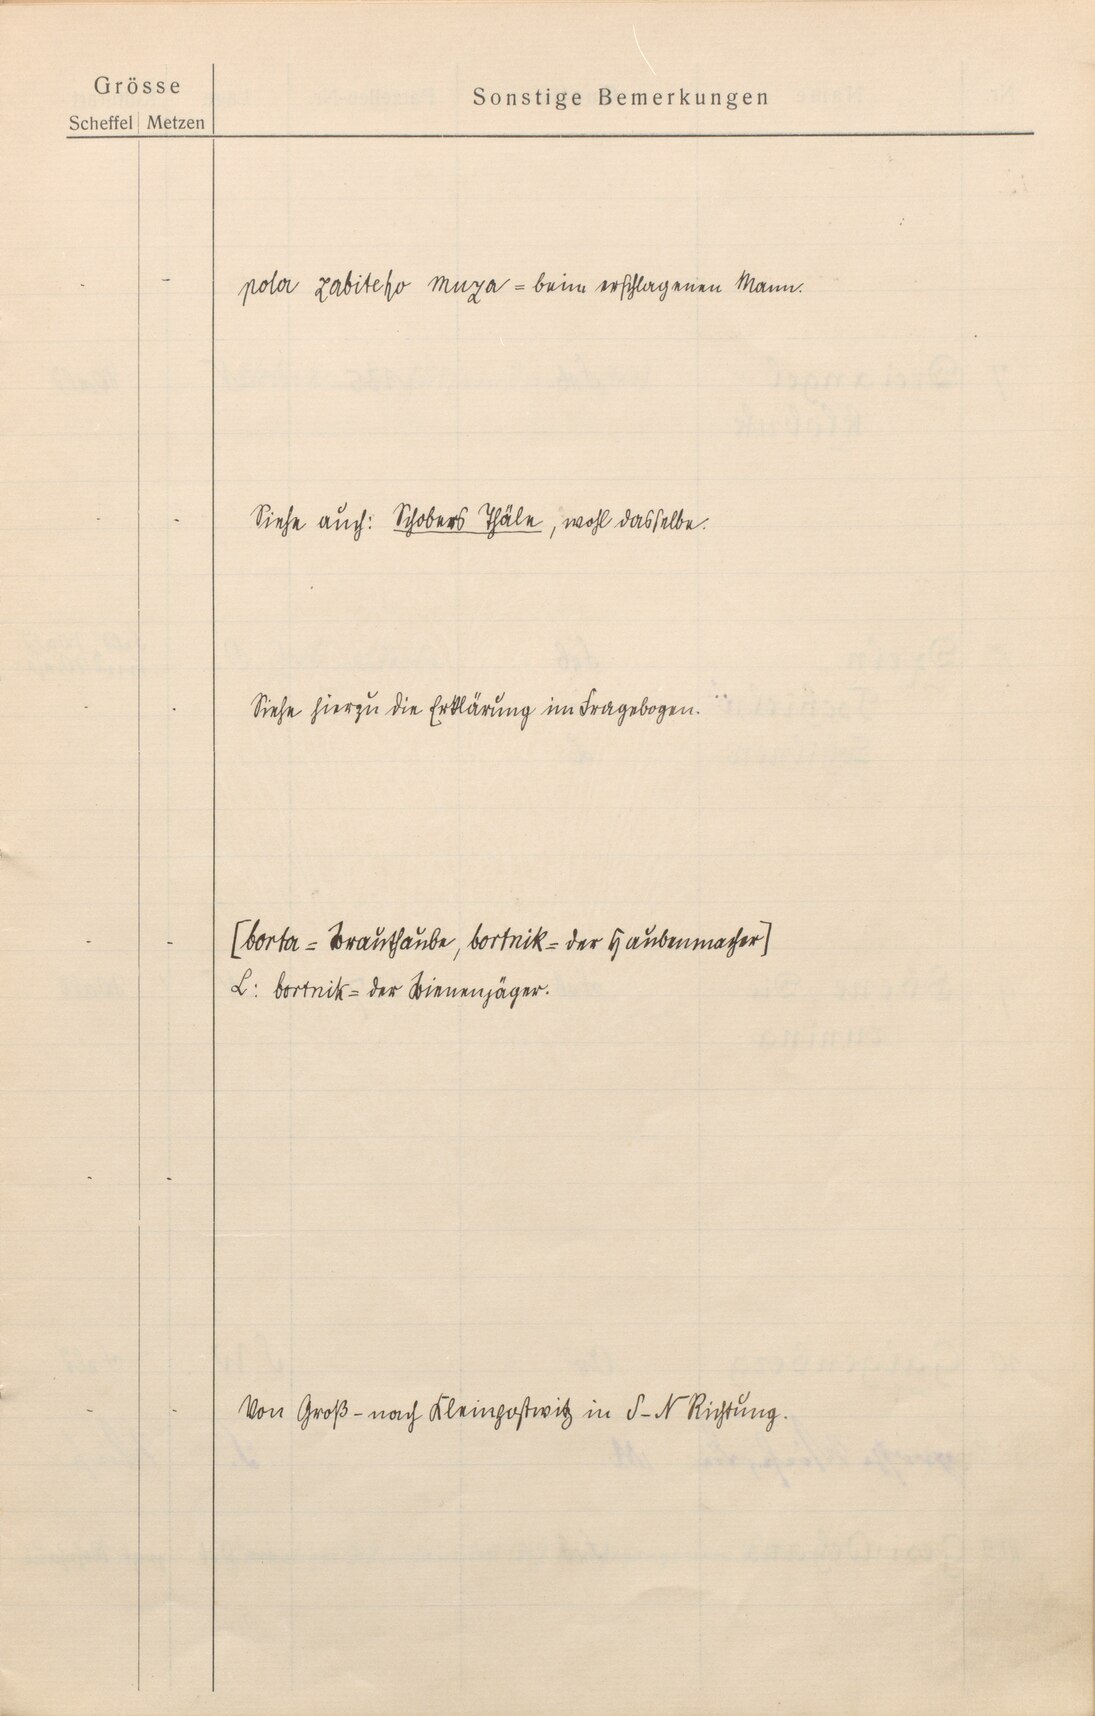 Grösse
Sonstige Bemerkungen
Scheffel Metzen
- - pola zabiteho muza = beim erschlagenen Mann.
- - Siehe auch: Schobers Thäle, wohl dasselbe.
- - Siehe hierzu die Erklärung im Fragebogen.
- - [borta = Brauthaube, bortnik = der Haubenmacher]
L: bortnik = der Bienenjäger.
- -
- - Von Groß- nach Kleinpostwitz in S-N Richtung.